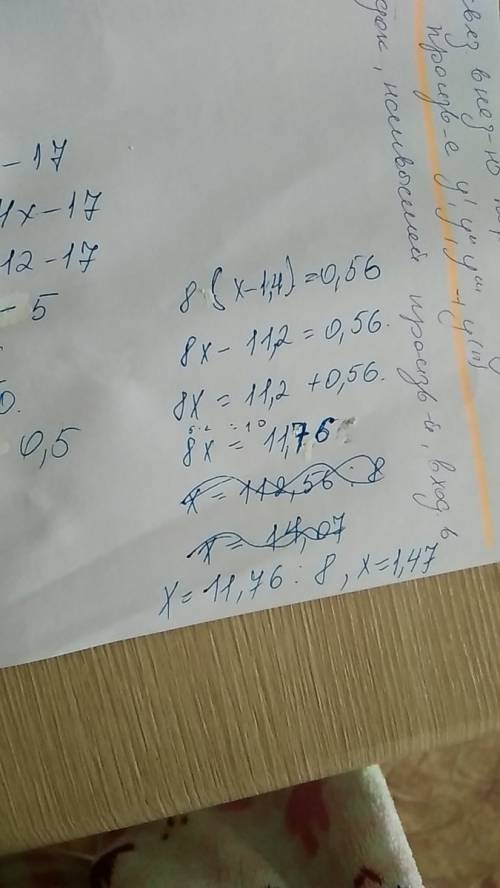 - 17
4x - 17
12 - 17
- 5
0.
0,5
8 (x - 1,4) = 0,56
8x - 11,2 = 0,56.
8x = 11,2 + 0,56.
8x = 11,76
x = 112,56 : 8
x = 14,07
x = 11,76 : 8, x = 1,47
произв-е y', y'', y''' y(n)
наивысшей произв-й, вход в